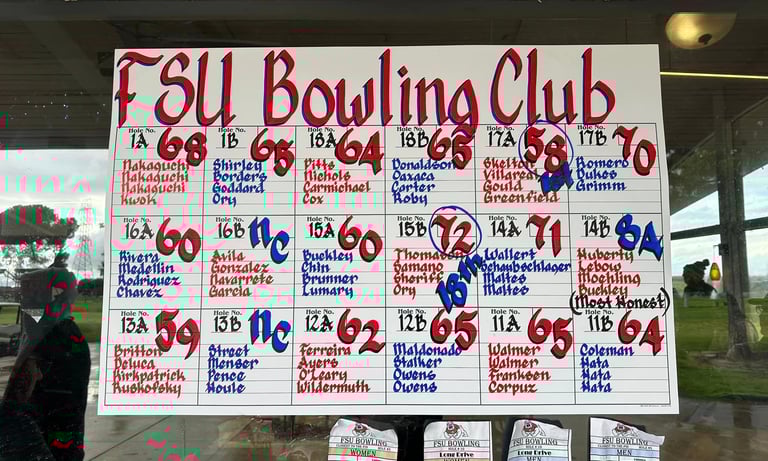 FSU Bowling Club
Hole No. 1A 68
Nakaguchi
Nakaguchi
Nakaguchi
Kwok
Hole No. 1B 65
Shirley
Borders
Goddard
Ory
Hole No. 18A 64
Pitts
Nichols
Carmichael
Cox
Hole No. 18B 65
Donaldson
Oaxaca
Carter
Roby
Hole No. 17A 58
Skelton
Villarsat
Gould
Greenfield
1st
Hole No. 17B 70
Romero
Dukes
Grimm
Hole No. 16A 60
Rivera
Medellin
Rodriguez
Chavez
Hole No. 16B nc
Avila
Gonzalez
Navarrete
Garcia
Hole No. 15A 60
Buckley
Chin
Brunner
Lumary
Hole No. 15B 72
Samano
Sheriff
Ory
18th
Hole No. 14A 71
Wallert
Schaubschlager
Maltes
Maltes
Hole No. 14B 84
Huberty
Lebow
Moehling
Buckley
(Most Honest)
Hole No. 13A 59
Britton
Deluca
Kirkpatrick
Ruskofsky
Hole No. 13B nc
Street
Menser
Pence
Houle
Hole No. 12A 62
Ferreira
Ayers
O'Leary
Wildermuth
Hole No. 12B 65
Maldonado
Stalker
Owens
Owens
Hole No. 11A 65
Walmer
Walmer
Franksen
Corpuz
Hole No. 11B 64
Coleman
Hata
Hata
Hata
FSU BOWLING
CLOSEST TO THE PIN
WOMEN
FSU BOWLING
Long Drive
WOMEN
FSU BOWLING
Long Drive
MEN
FSU BOWLING
CLOSEST TO THE PIN
MEN